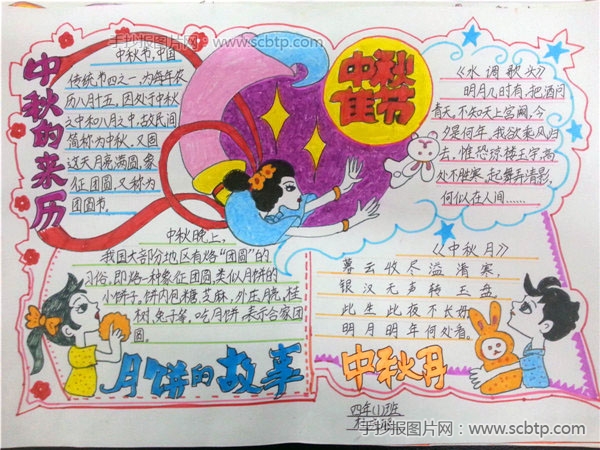 手抄报图片网 - www.scbtp.com
中秋的来历
中秋节,中国
传统节四之一,为每年农
历八月十五,因处于中秋
之中和八月之中,故民间
简称为中秋,又因
这天月亮满圆,象
征团圆,又称为
团圆节。
中秋佳节
《水调歌头》
明月几时有,把酒问
青天,不知天上宫阙,今
夕是何年,我欲乘风归
去,惟恐琼楼玉宇,高
处不胜寒,起舞弄清影,
何似在人间……
中秋晚上,
我国大部分地区有烙“团圆”的
习俗,即烙一种象征团圆,类似月饼的
小饼子,饼内包糖,芝麻,外压月亮,桂
树,兔子等,吃月饼,表示合家团
圆。
月饼的故事
《中秋月》
暮云收尽溢清寒,
银汉无声转玉盘,
此生此夜不长好,
明月明年何处看。
中秋月
四年(1)班
手抄报图片网:www.scbtp.com